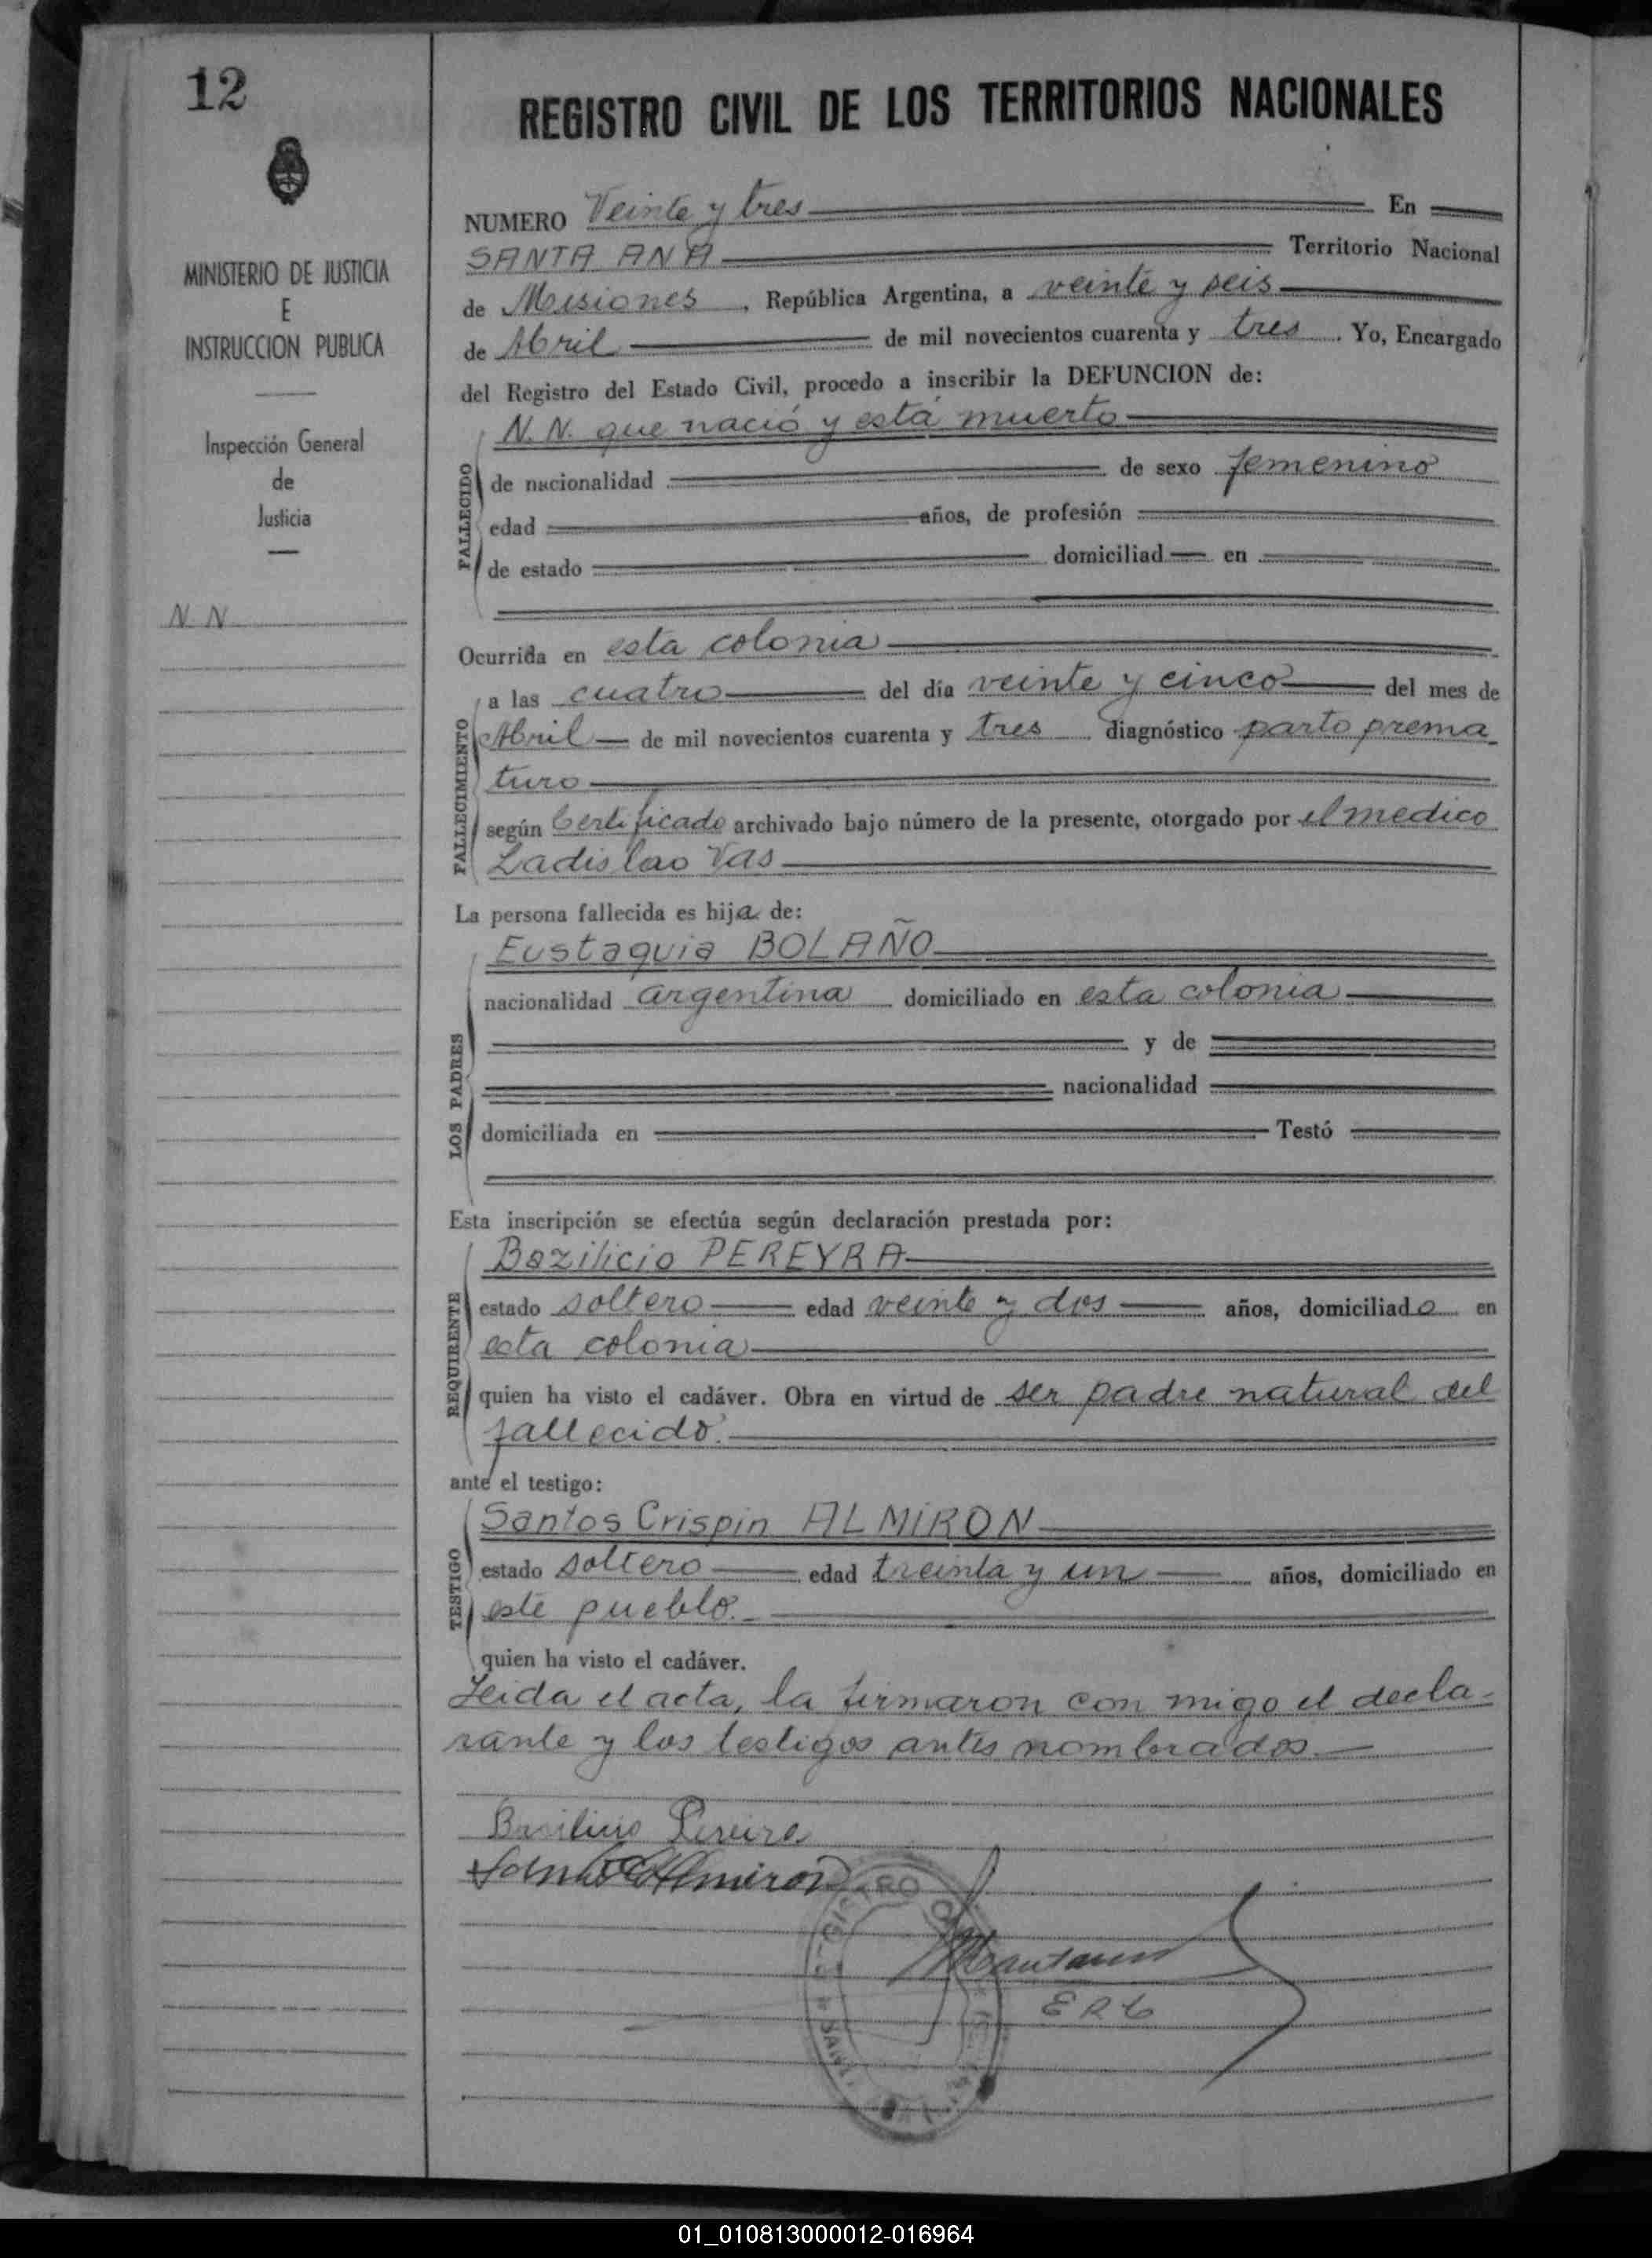 12
MINISTERIO DE JUSTICIA
E
INSTRUCCION PUBLICA
Inspección General
de
Justicia
N. N.
REGISTRO CIVIL DE LOS TERRITORIOS NACIONALES
NUMERO Veinte y tres En
SANTA ANA Territorio Nacional
de Misiones, República Argentina, a veinte y seis
de Abril de mil novecientos cuarenta y tres. Yo, Encargado
del Registro del Estado Civil, procedo a inscribir la DEFUNCION de:
FALLECIDO
N. N. que nació y está muerto
de nacionalidad de sexo femenino
edad años, de profesión
de estado domiciliad en
Ocurrida en esta colonia
FALLECIMIENTO
a las cuatro del día veinte y cinco del mes de
Abril de mil novecientos cuarenta y tres diagnóstico parto prema
turo
según Certificado archivado bajo número de la presente, otorgado por el medico
Ladislao Vas
La persona fallecida es hija de:
LOS PADRES
Eustaquia BOLAÑO
nacionalidad argentina domiciliado en esta colonia
y de
nacionalidad
domiciliada en Testó
Esta inscripción se efectúa según declaración prestada por:
REQUIRENTE
Bazilicio PEREYRA
estado soltero edad veinte y dos años, domiciliado en
esta colonia
quien ha visto el cadáver. Obra en virtud de ser padre natural del
fallecido.
ante el testigo:
TESTIGO
Santos Crispin ALMIRON
estado soltero edad treinta y un años, domiciliado en
este pueblo.
quien ha visto el cadáver.
Leida el acta, la firmaron con migo el decla-
rante y los testigos antes nombrados
Pereira
Almiron
ERC
01_010813000012-016964